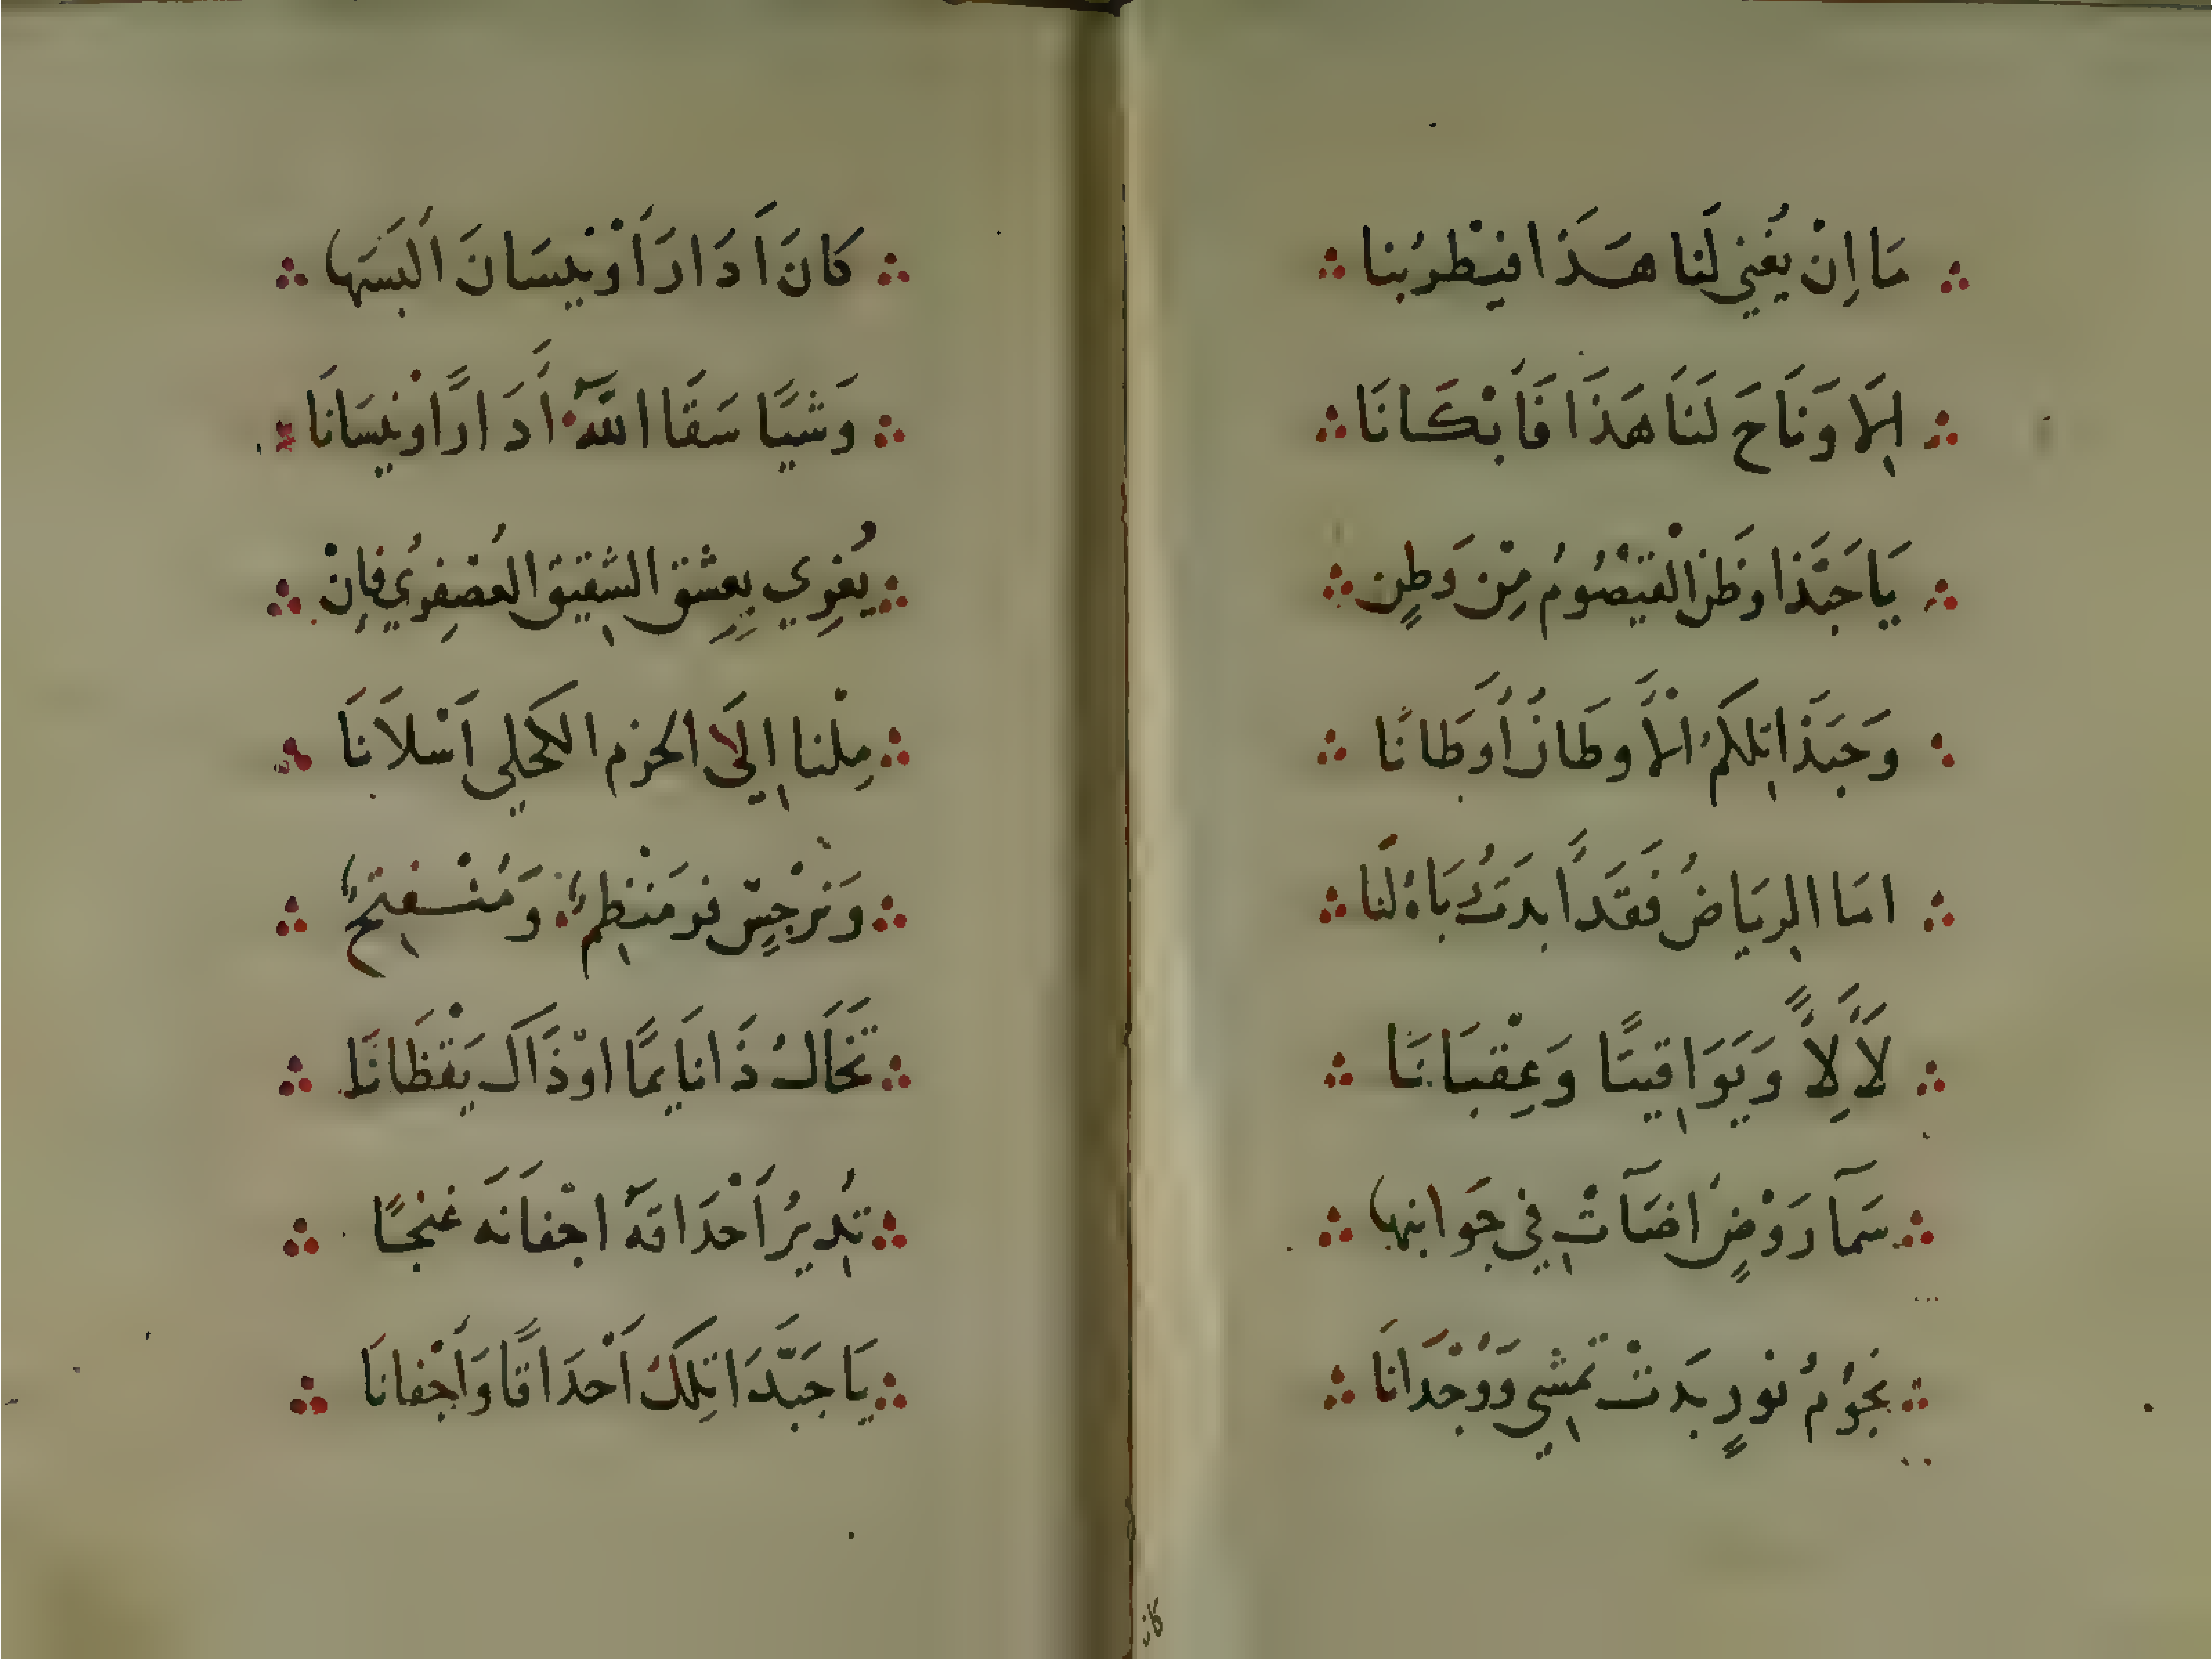 مَا اِنْ يُغَنِي لَنَا هَذَا فَيُطْرِبُنا
اِلَا وَنَاحَ لَنَا هَذَا فَأَبْكَانَا
يَا حَبَّذا وَطَن الْقَيْصُومُ مِنْ وَطٍن
وَحَبَذَا تِلكُمُ الْأَوطَانُ أَوطَانًا
امَا الرِيَاضُ فَقَد اَبدَتْ بَاهُ لَنا
لَأَلِأً وَيَوَاقِيتًا وَعِقْيَانَا
سَمَآ رَوْضٍ أضَآتْ فِي جَوانِبها
نجُوُمُ نَوْرٍ بَدَتْ تَمشِي وَوُجْدَانَا
كَانَ اَدَارَ اَوْ نِيسَانَ اَلبَسَهَا
وَشيًا سَقَا اللَّهُ أَدَارًا وْنِيسَانَا
يُغرِي بِعِشْقِ الشَقِيق العُصْفِرُيُ فإِنْ
مِلْنا إِلَى الحزم الكحلي اَسْلَانَا
وَنَرْجِسٍ فو مَنْظِمٌ وَمُنْفتِحٌ
تخَاَلُ ذَا نَايمًا اوْ ذَاكَ يَقْظَانَا
تُدِيرُ أَحْدَاقَهُ اجْفَانَه غنجًا
يَا حَبَّذَا تِلكَ أَحْدَاقًا وَأَجْفانَا
كان